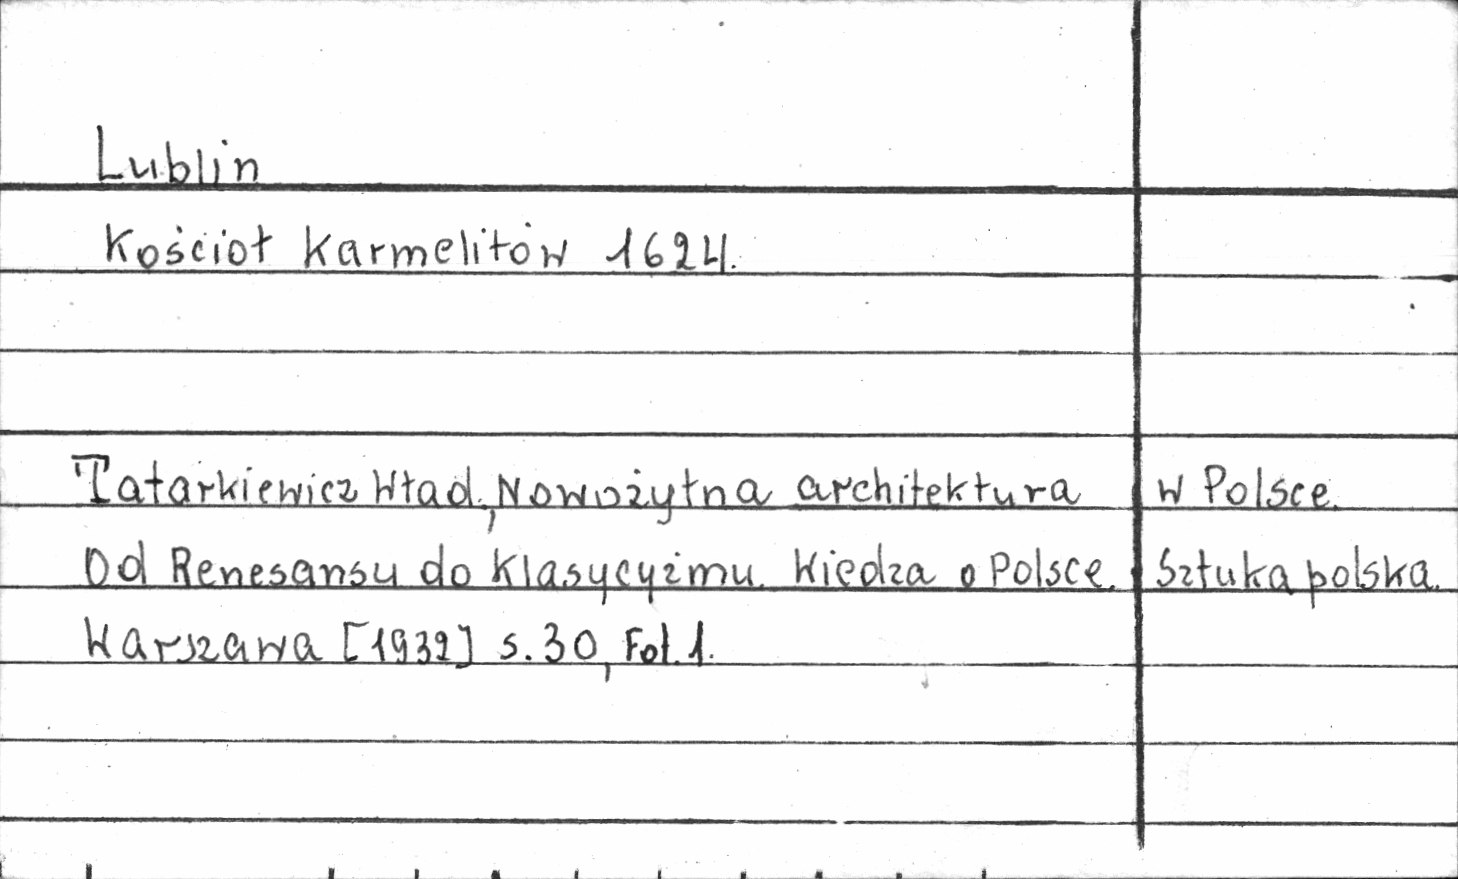 Lublin
Kościół Karmelitów 1624.
Tatarkiewicz Wład., Nowożytna architektura w Polsce.
Od Renesansu do Klasycyzmu. Wiedza o Polsce. Sztuka polska.
Warszawa [1932] s. 30, Fot. 1.